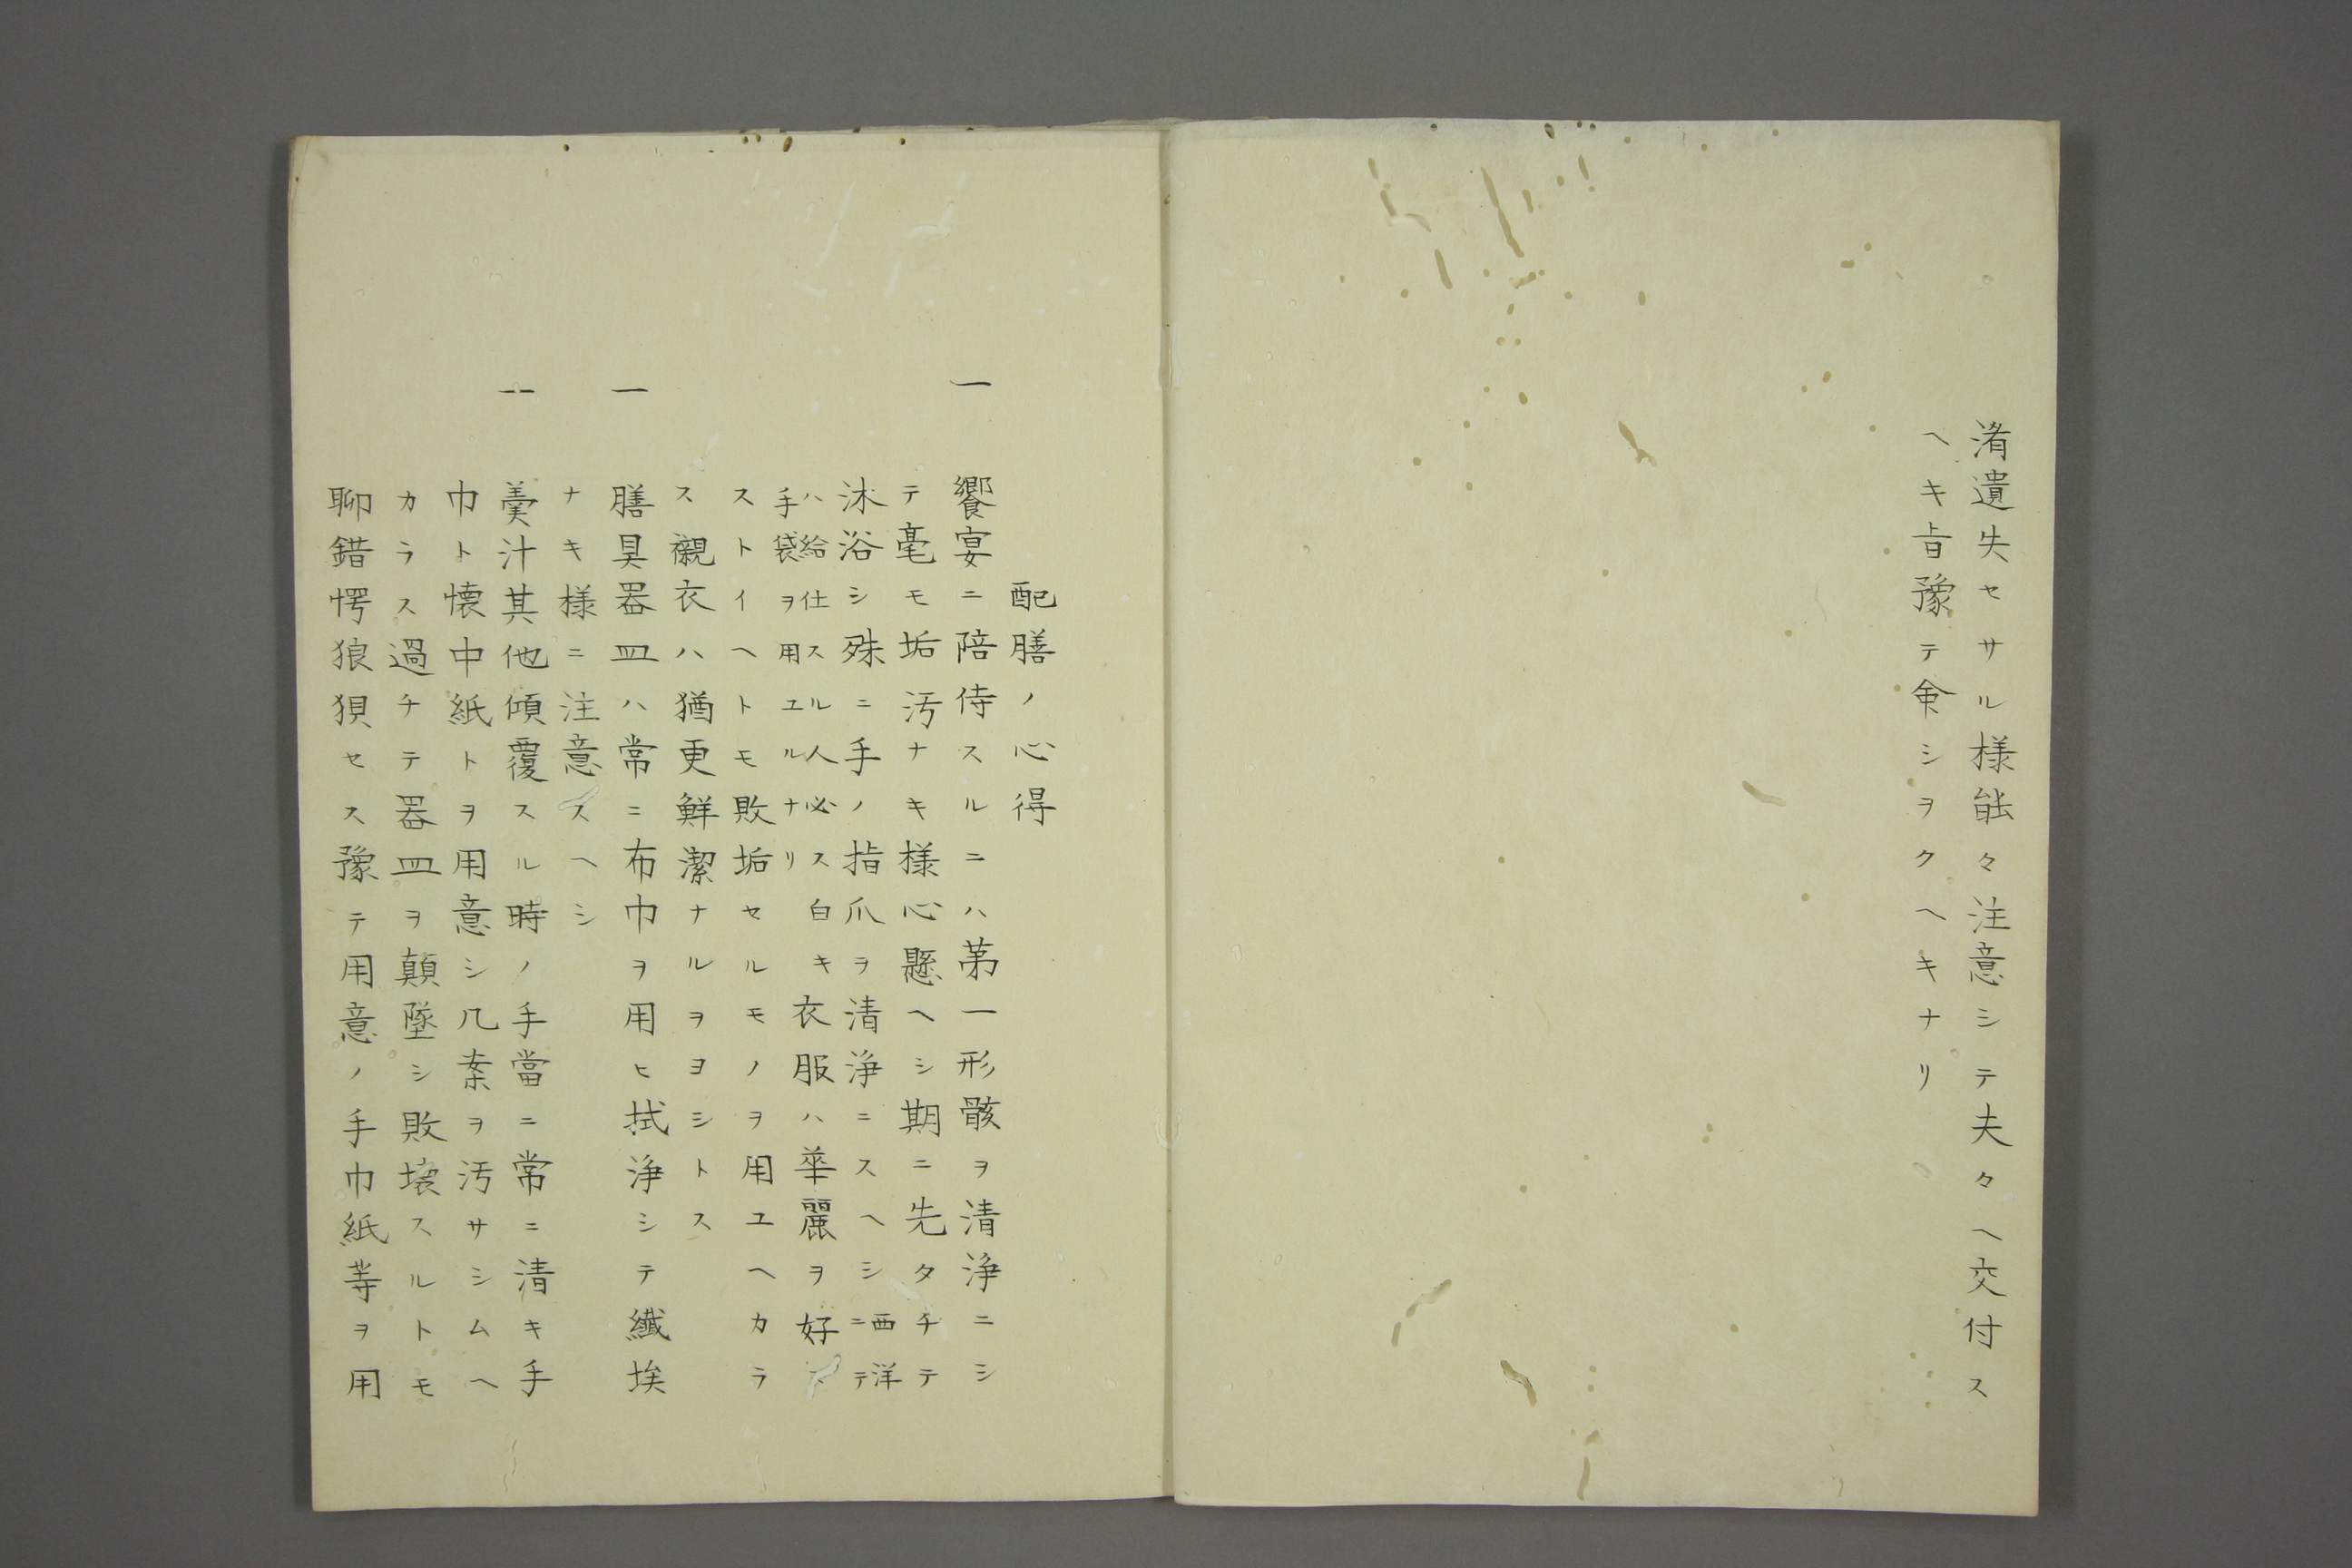 淆遺失セサル様能々注意シテ夫々ヘ交付ス
ヘキ旨豫テ命シヲクヘキナリ
配膳ノ心得
一 饗宴ニ陪侍スルニハ第一形骸ヲ清浄ニシ
テ毫モ垢汚ナキ様心懸ヘシ期ニ先タチテ
沐浴シ殊ニ手ノ指爪ヲ清浄ニスヘシ西洋ニテ
ハ給仕スル人必ス白キ
手袋ヲ用ユルナリ
衣服ハ華麗ヲ好
ストイヘトモ敗垢セルモノヲ用ユヘカラ
ス襯衣ハ猶更鮮潔ナルヲヨシトス
一 膳具器皿ハ常ニ布巾ヲ用ヒ拭浄シテ纎埃
ナキ様ニ注意スヘシ
一 羹汁其他傾覆スル時ノ手當ニ常ニ清キ手
巾ト懐中紙トヲ用意シ几案ヲ汚サシムヘ
カラス過チテ器皿ヲ顛墜シ敗壊スルトモ
聊錯愕狼狽セス豫テ用意ノ手巾紙等ヲ用